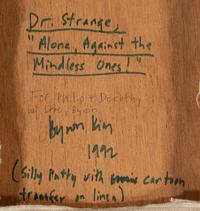 Dr. Strange,
"Alone, Against the
Mindless Ones,"
For Philip + Dorothy
w/ Love, Byron
Byron Kim
1992
(Silly Putty with cartoon
transfer on linen)